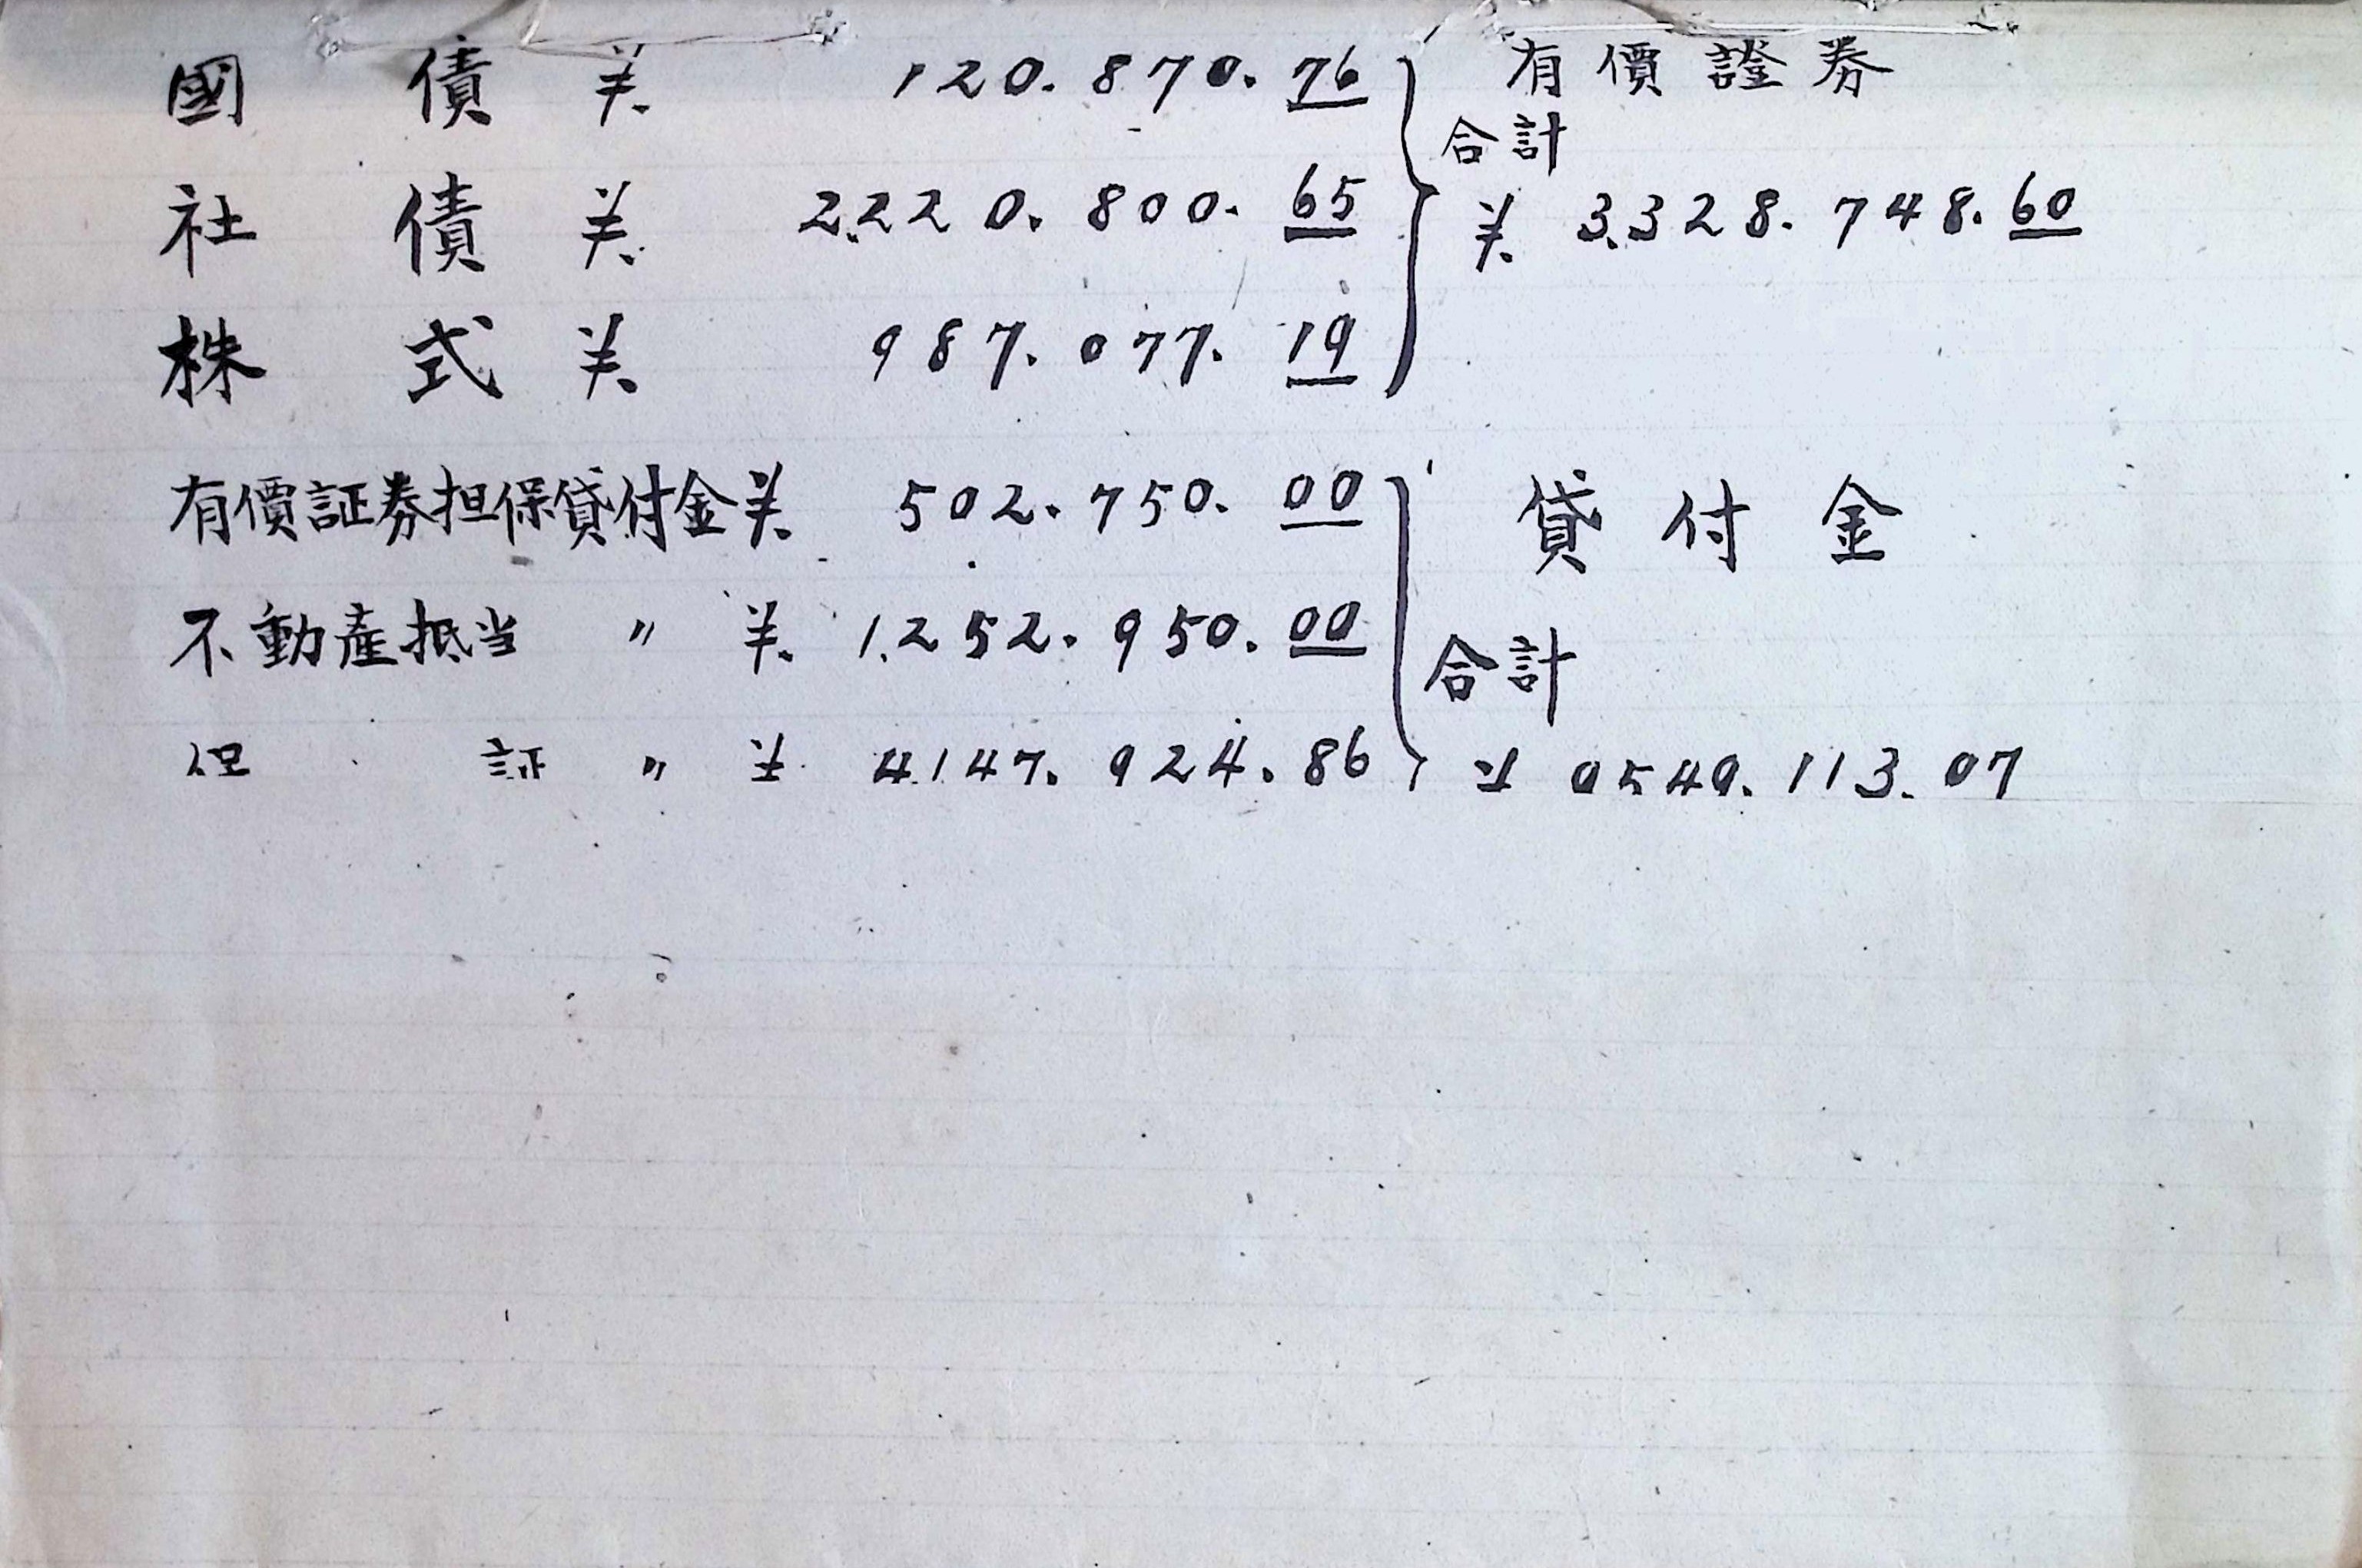 國債 ¥. 120.870.76
有價證券
合計
社債 ¥. 2.220.800.65
¥. 3.328.748.60
株式 ¥. 987.077.19
有價証券担保貸付金 ¥. 502.750.00
貸付金
不動產抵当 〃 ¥. 1.252.950.00
合計
証 〃 ¥. 4.147.924.86